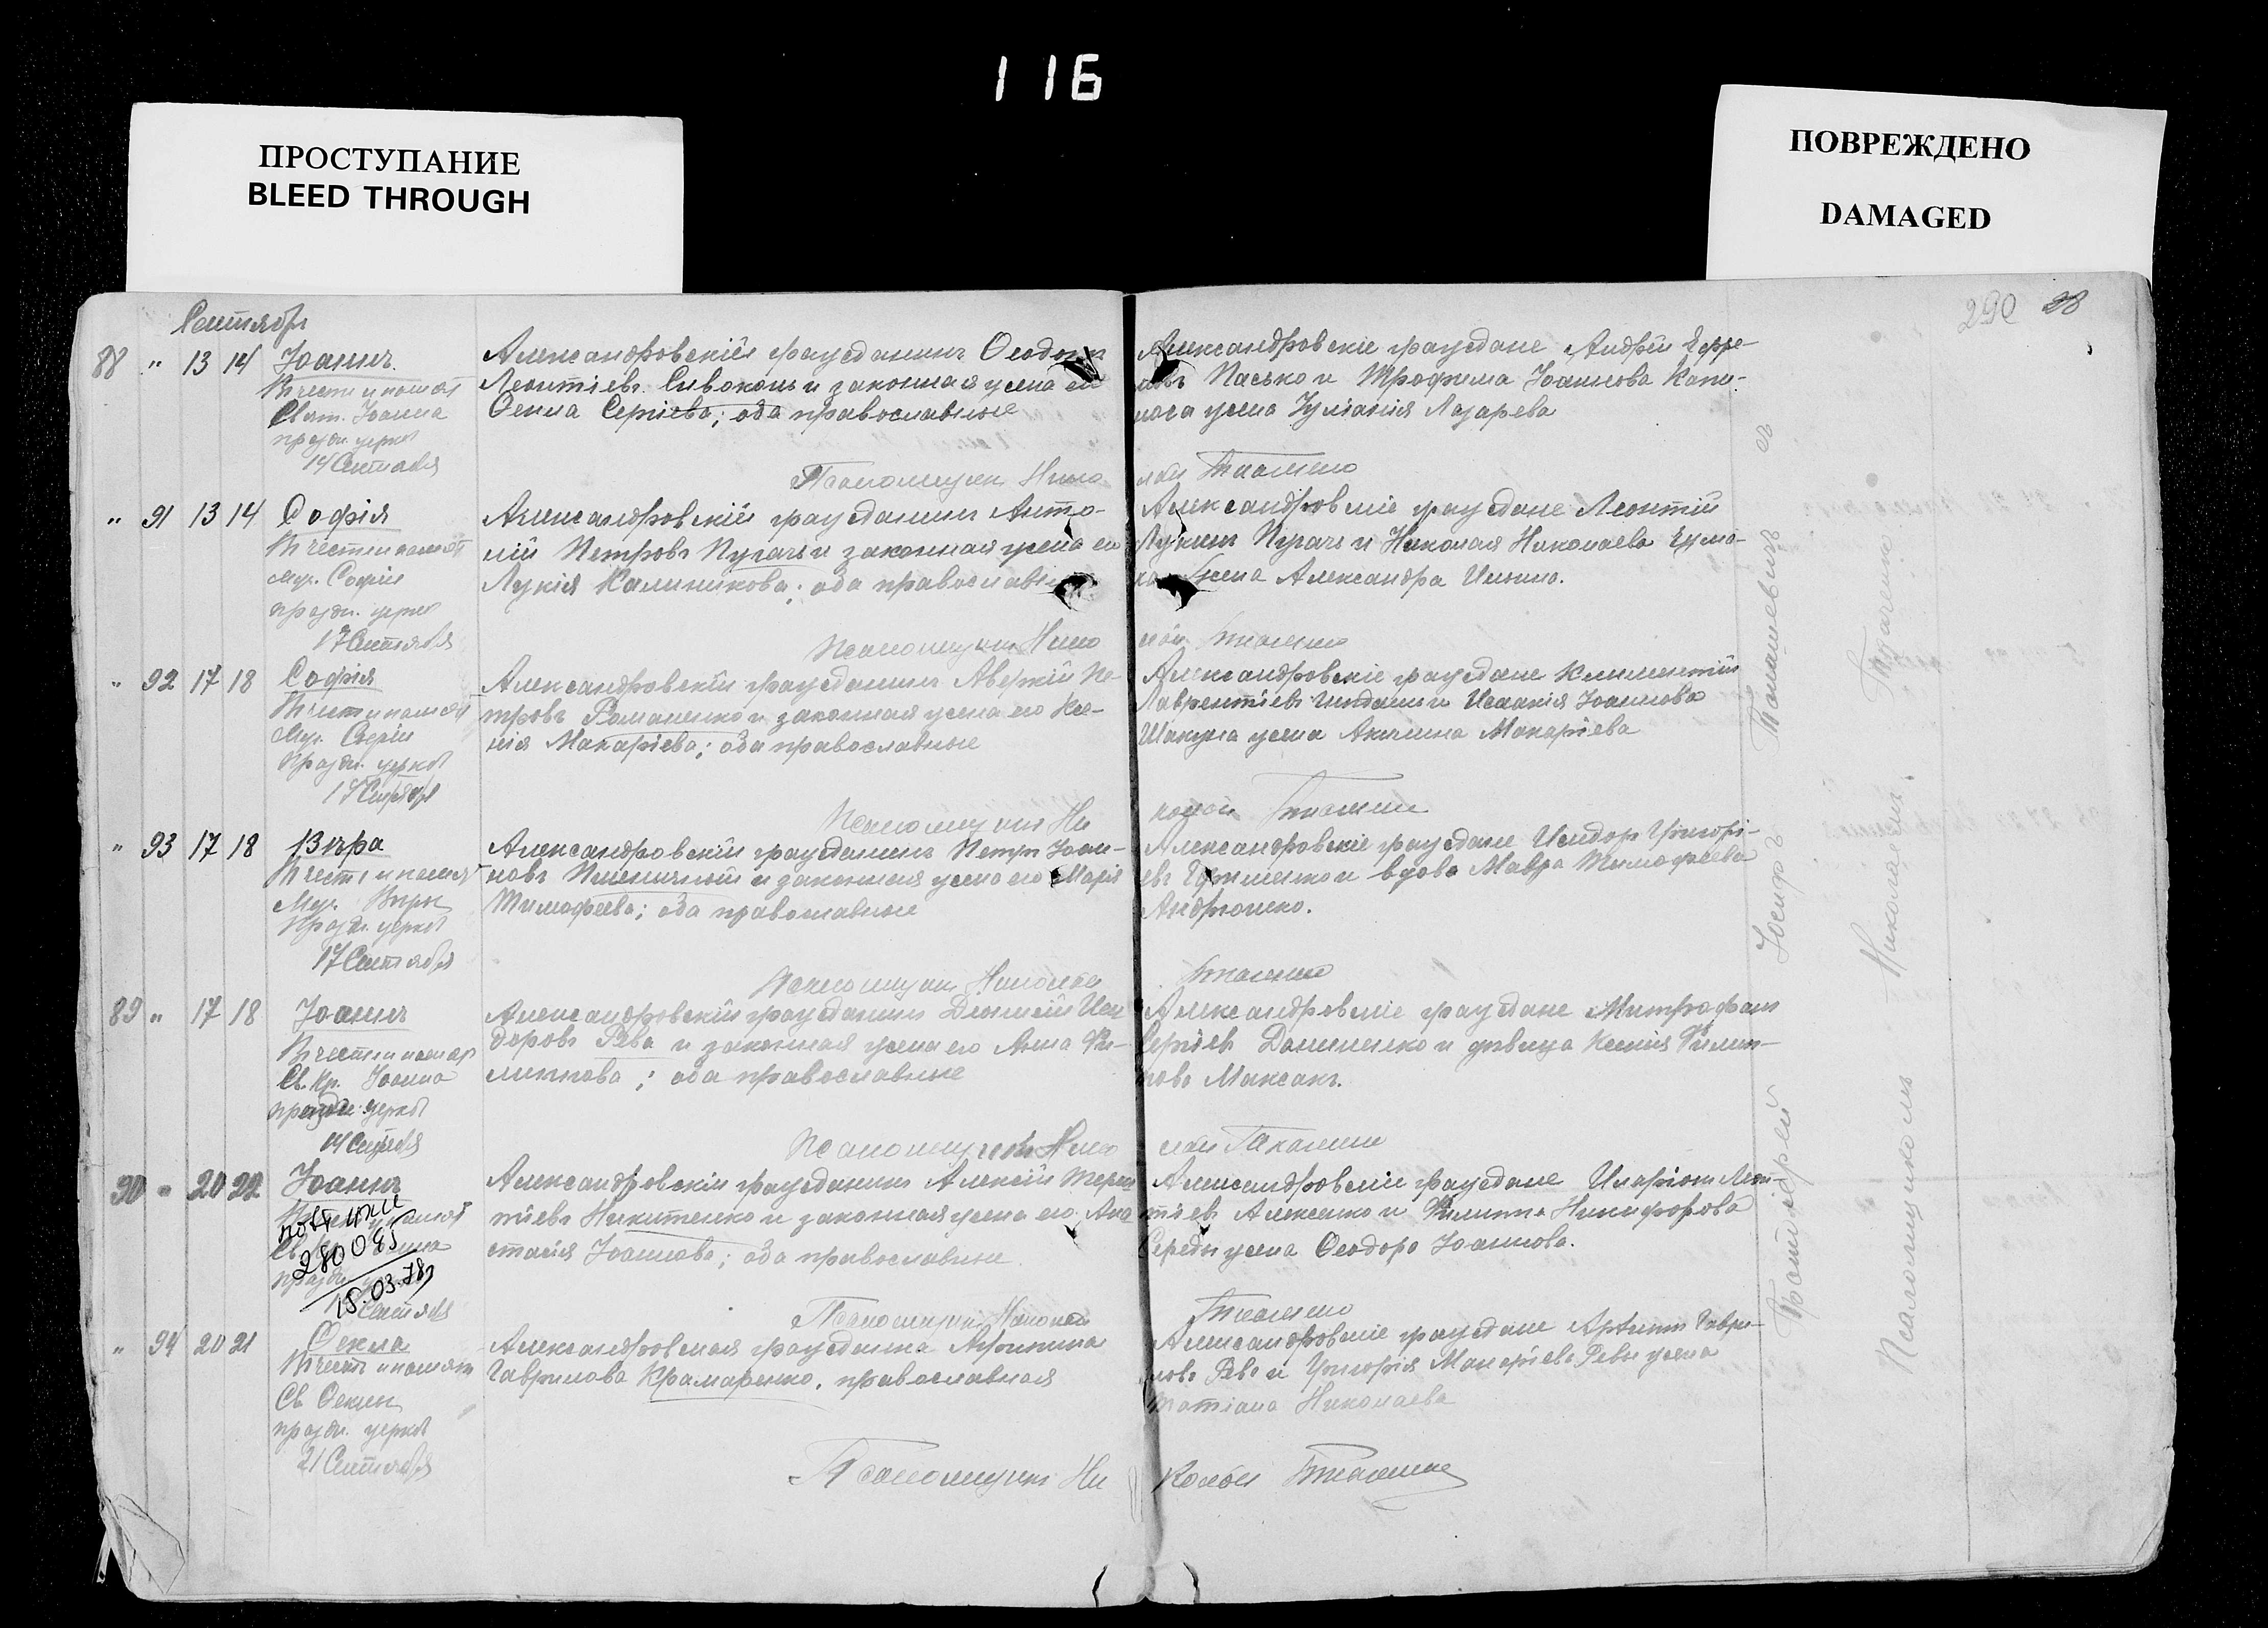 116
ПРОСТУПАНИЕ
BLEED THROUGH
ПОВРЕЖДЕНО
DAMAGED
290 28
Сентябрь
88 " 13 14 Іоаннъ
Въ честь и память
Свят. Іоанна
праздн. церков
14 Сентября
Александровскій гражданинъ Ѳеодоръ
Леонтіевъ Сивоконь и законная жена его
Ѳекла Сергіева; оба православные
Александровскіе граждане Андрей Ефре-
мовъ Пасько и Трофима Іоаннова
жена Іуліанія Лазарева
Псаломщикъ Нико
лай Ткаченко
" 91 13 14 Софія
Въ честь и память
муч. Софіи
праздн. церков
17 Сентября
Александровскій гражданинъ Анто-
ній Петровъ Пугачъ и законная жена его
Лукія Калиникова; оба православные
Александровскіе граждане Леонтій
Лукинъ Пугачъ и Николая Николаева
жена Александра Ильина.
Псаломщикъ Нико
лай Ткаченко
" 92 17 18 Софія
Въ честь и память
Муч. Софіи
Праздн. церков
17 Сентября
Александровскій гражданинъ Аверкій Пе-
тровъ Романенко и законная жена его Ксе-
нія Макаріева; оба православные
Александровскіе граждане Климентій
Лаврентіевъ и Исаакія Іоаннова
Шакуна жена Акилина Макаріева
Псаломщикъ Ни
колай Ткаченко
" 93 17 18 Вѣра
Въ честь и память
Муч. Вѣры
Праздн. церков
17 Сентября
Александровскій гражданинъ Петръ Іоан-
новъ Пшеничный и законная жена его Марія
Тимофеева; оба православные
Александровскіе граждане Исидоръ Григорі-
евъ и вдова Мавра Тимофеева
Андрющенко.
Псаломщикъ Николай
Ткаченко
89 " 17 18 Іоаннъ
Въ честь и память
Св. Кр. Іоанна
праздн. церков
14 Сентября
Александровскій гражданинъ Діонисій Иси
доровъ Рева и законная жена его Анна Фи-
липпова; оба православные
Александровскіе граждане Митрофанъ
Сергіевъ Даниленко и дѣвица Ксенія Филип-
пова Максакъ.
Псаломщикъ Нико
лай Ткаченко
90 " 20 22 Іоаннъ
280085
18.03.78
Сентября
Александровскій гражданинъ Алексій Терен
тіевъ Никитенко и законная жена его Ана
стасія Іоаннова; оба православные
Александровскіе граждане Иларіонъ Леон-
тіевъ Алексенко и Филиппа Никифорова
Середы жена Ѳеодора Іоаннова.
Псаломщикъ Николай
Ткаченко
" 94 20 21 Ѳекла
Въ честь и память
Св. Ѳеклы
праздн. церков
21 Сентября
Александровская гражданка Агрипина
Гаврилова Крамаренко, православная
Александровскіе граждане Артемъ Гаври-
ловъ Рева и Григорія Макаріева Ревы жена
Татіана Николаева
Псаломщикъ Ни
колай Ткаченко
Протоіерей Іосифъ
Псаломщикъ Николай Ткаченко